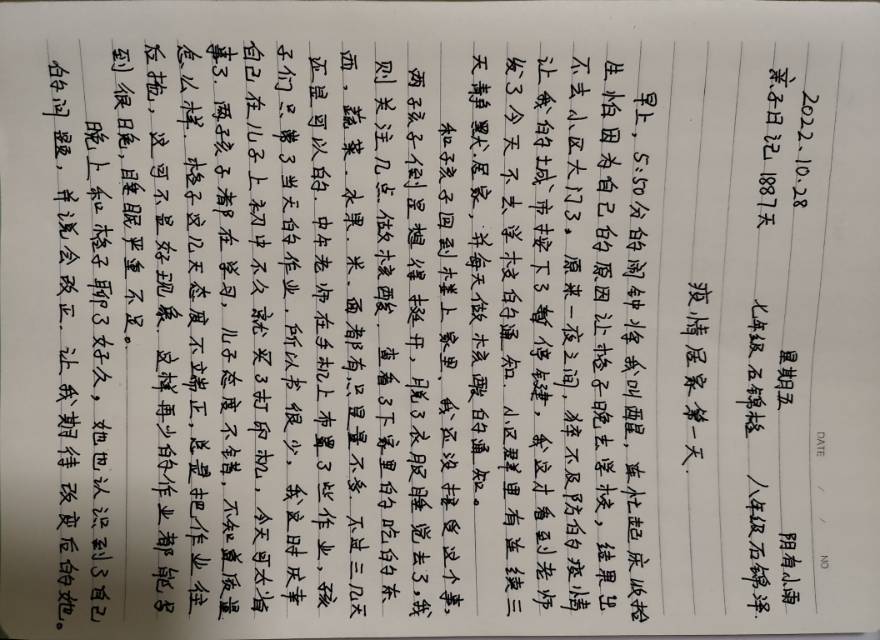 DATE / / NO
2022.10.28 星期五 阴有小雨
亲子日记1887天 七年级石锦格 八年级石锦泽.
疫情居家第一天.
早上,5:50分的闹钟将我叫醒,连忙起床收拾
生怕因为自己的原因让格子晚去学校,结果出
不去小区大门了。原来一夜之间,猝不及防的疫情
让我的城市按下了暂停键,我这才看到老师
发了今天不去学校的通知.小区群里有连续三
天静默居家,并每天做核酸的通知。
和子孩子回到楼上家里,我还没接受这个事,
两孩子倒是想得挺开,脱了衣服睡觉去了,我
则关注几点做核酸.查看了下家里的吃的东
西,蔬菜.水果.米.面都有只是量不多.不过三几天
还是可以的.中午老师在手机上布置了些作业,孩
子们只带了当天的作业,所以书很少,我这时庆幸
自己在儿子上初中不久就买了打印机,今天可太省
事了.两孩子都在学习,儿子态度不错,不知道质量
怎么样.格子这几天态度不端正,总是把作业往
后拖,这可不是好现象.这样再少的作业都能写
到很晚,睡眠严重不足。
晚上和格子聊了好久,她也认识到了自己
的问题,并说会改正.让我期待改变后的她。